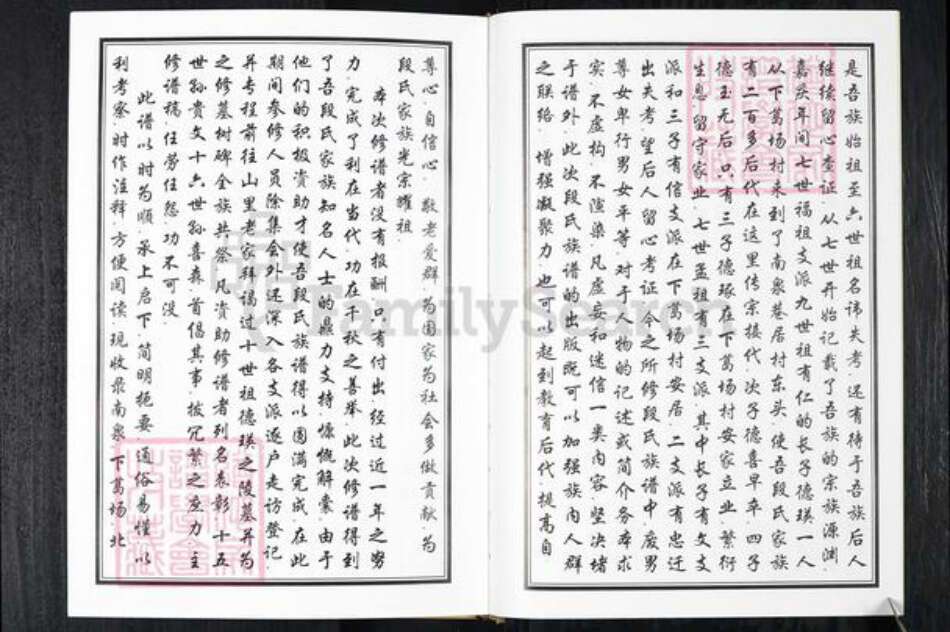 是吾族始祖至六世祖名讳失考.还有待于吾族后人
继续留心查证.从七世开始记载了吾族的宗族源渊.
嘉庆年间七世福祖支派九世祖有仁的长子德瑛一人
从下葛场村来到了南泉巷居村东头.使吾段氏家族
有二百多后代在这里传宗接代.次子德喜早卒.四子
德玉无后.只有三子德琢在下葛场村安家立业.繁衍
生息.留守家业.七世孟祖有三支派.其中长子有文支
派和三子有信支派在下葛场村安居.二支派有忠迁
出失考.望后人留心考证.今之所修段氏族谱中.废男
尊女卑行男女平等.对于人物的记述或简介务本求
实.不虚构.不渲染.凡虚妄和迷信一类内容.坚决堵
于谱外.此次段氏族谱的出版既可以加强族内人群
之联络.增强凝聚力.也可以起到教育后代.提高自
尊心.自信心.敬老爱群.为国家为社会多做贡献.为
段氏家族光宗耀祖.
本次修谱者没有报酬.只有付出经过近一年之努
力.完成了利在当代.功在千秋之善举.此次修谱得到
了吾段氏家族知名人士的鼎力支持.慷慨解囊.由于
他们的积极资助才使吾段氏族谱得以圆满完成.在此
期间参修人员除集会外还深入各支派逐户走访登记.
并专程前往山里老家拜谒过十世祖德瑛之陵墓并为
之修墓树碑全族共祭.凡资助修谱者列名表彰.十五
世孙贵文十六世孙喜森首倡其事.披冗繁之应力.主
修谱稿.任劳任怨.功不可没.
此谱以时为顺.承上启下.简明扼要.通俗易懂.以
利考察.时作注释.方便阅读.现收录南泉.下葛场.北
FamilySearch